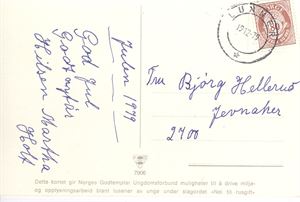 Julen 1979
God Jul
Godt nyttår
Hilsen Martha
Holt
Fru Bjørg Hellerud
Jevnaker
2700
7906
Dette kortet gir Norges Godtemplar Ungdomsforbund muligheter til å drive miljø-
og opplysningsarbeid blant tusener av unge under slagordet «Nei til rusgift»